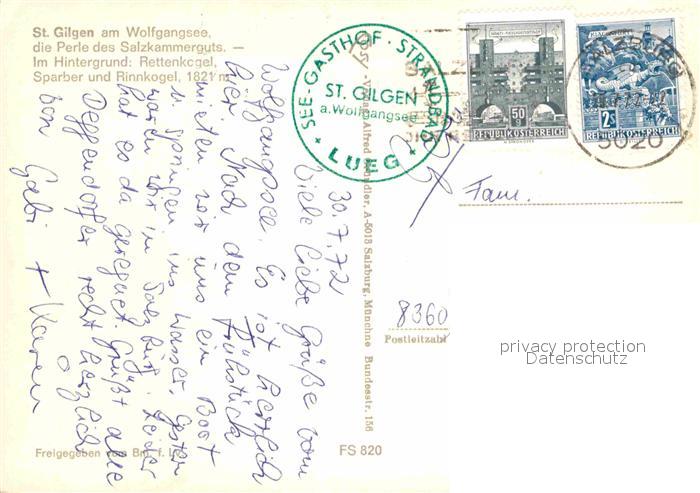 St. Gilgen am Wolfgangsee,
die Perle des Salzkammerguts. —
Im Hintergrund: Rettenkogel,
Sparber und Rinnkogel, 1821 m
SEE-GASTHOF · STRANDBAD
ST. GILGEN
a. Wolfgangsee
* LUEG *
50
REPUBLIK ÖSTERREICH
2 S
REPUBLIK ÖSTERREICH
SALZBURG
5020
30.7.72
Viele liebe Grüße vom
Wolfgangsee. Es ist herrlich
hier. Nach dem Frühstück
mieten wir uns ein Boot
u. springen ins Wasser. Gestern
waren wir in Salzburg. Leider
hat es da geregnet. Grüßt alle
Deggendorfer recht herzlich
von
Gabi + Karen
Verlag Alfred A-5013 Salzburg, Münchne Bundesstr. 156
Fam.
8360
Postleitzahl
privacy protection
Datenschutz
Freigegeben vom Bm. f. Lv.
FS 820